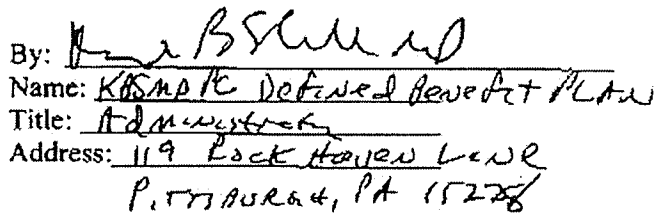 By:
Name: KBSMD PC Defined Benefit PLAN
Title: Administrator
Address: 119 Rock Haven Lane
Pittsburgh, PA 15228